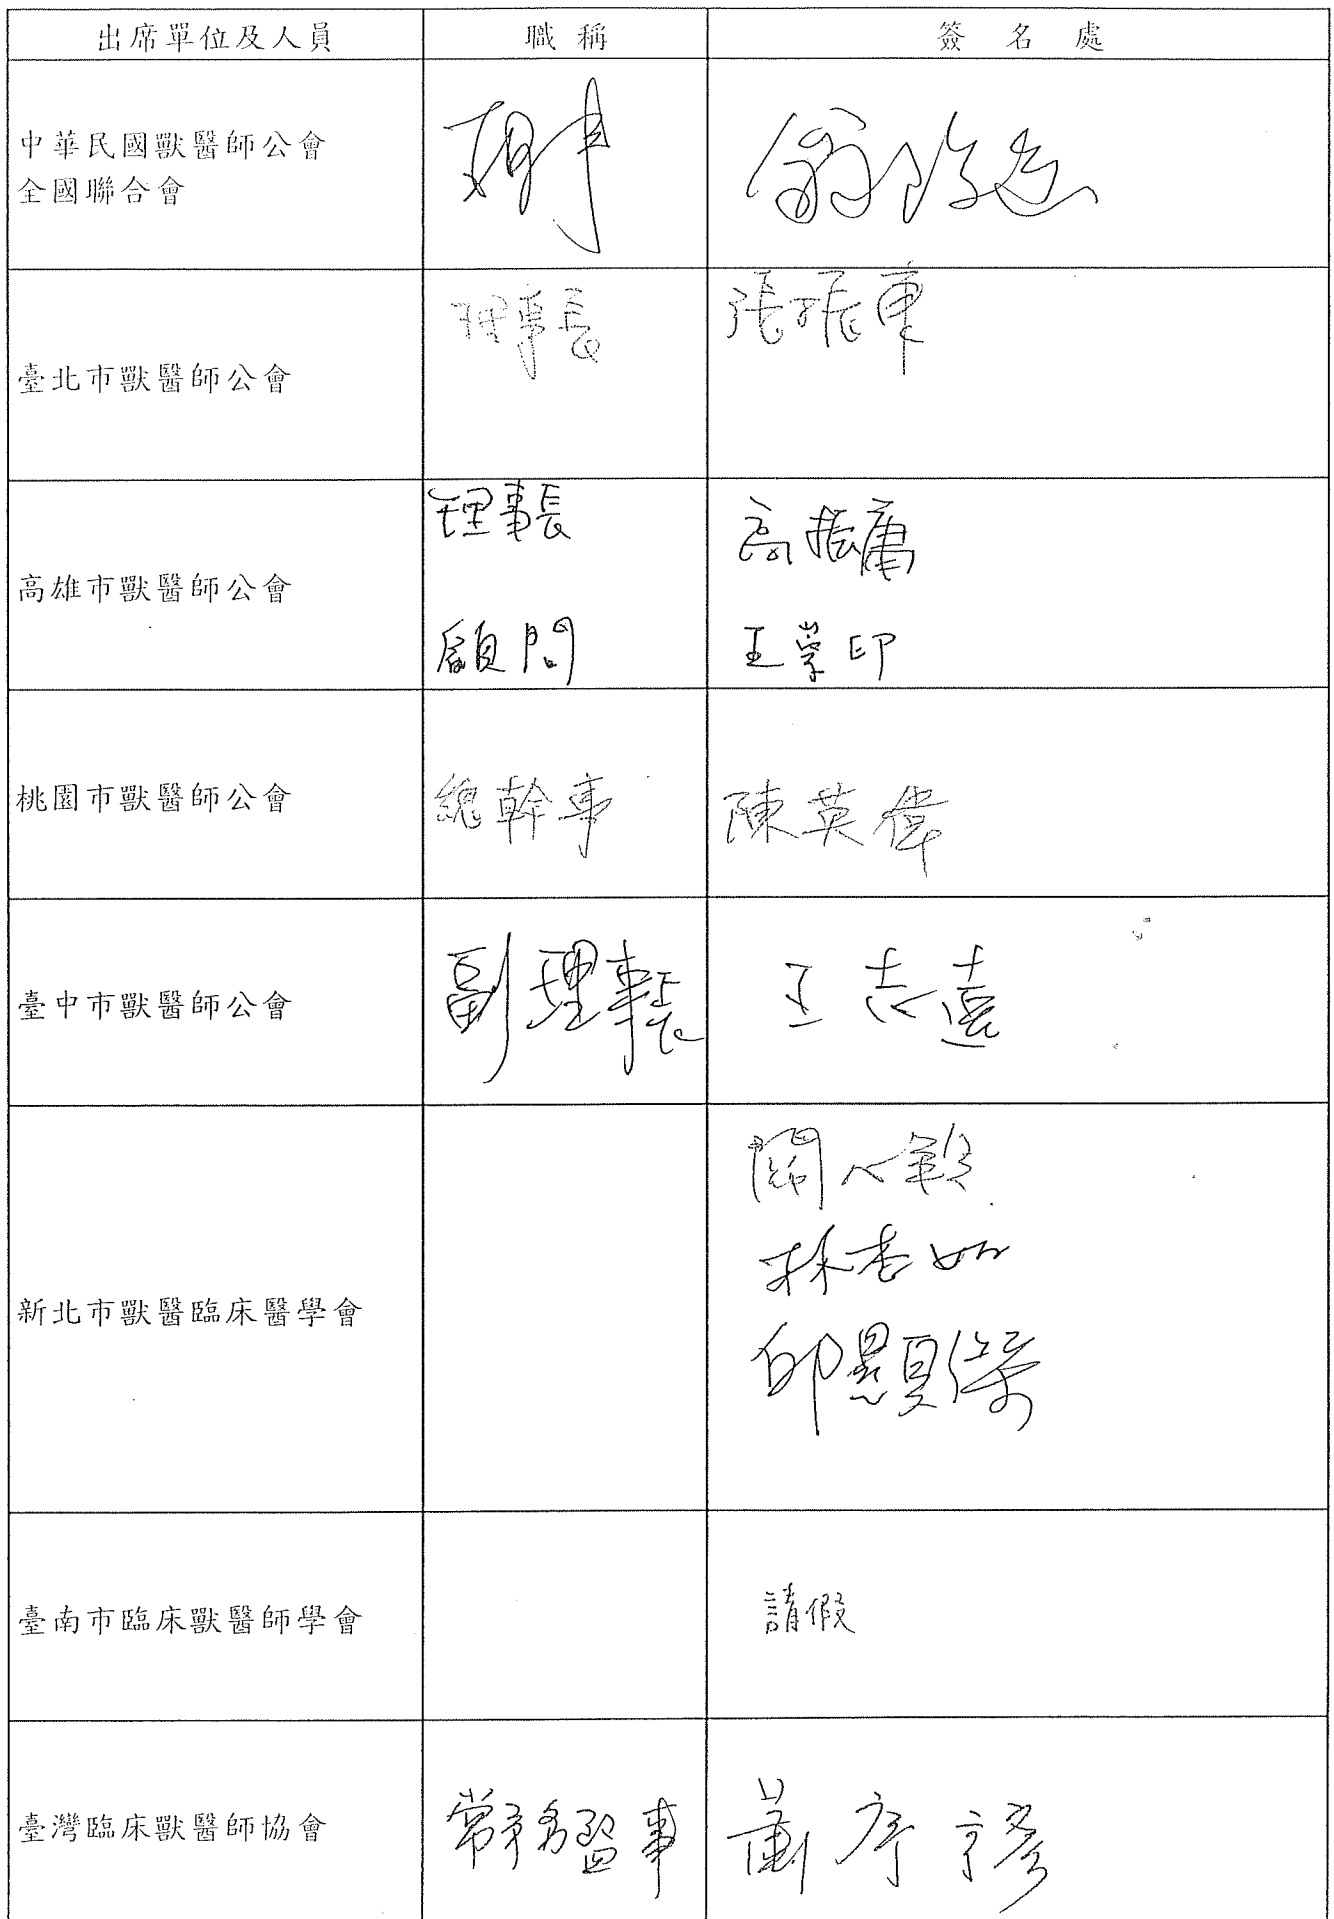 出席單位及人員 職稱 簽名處
中華民國獸醫師公會
全國聯合會
臺北市獸醫師公會 理事長 張振東
高雄市獸醫師公會 理事長 高振庸
顧問 王學印
桃園市獸醫師公會 總幹事 陳英偉
臺中市獸醫師公會 副理事長 王志遠
新北市獸醫臨床醫學會
林杏如
邱顯
臺南市臨床獸醫師學會 請假
臺灣臨床獸醫師協會 常務監事